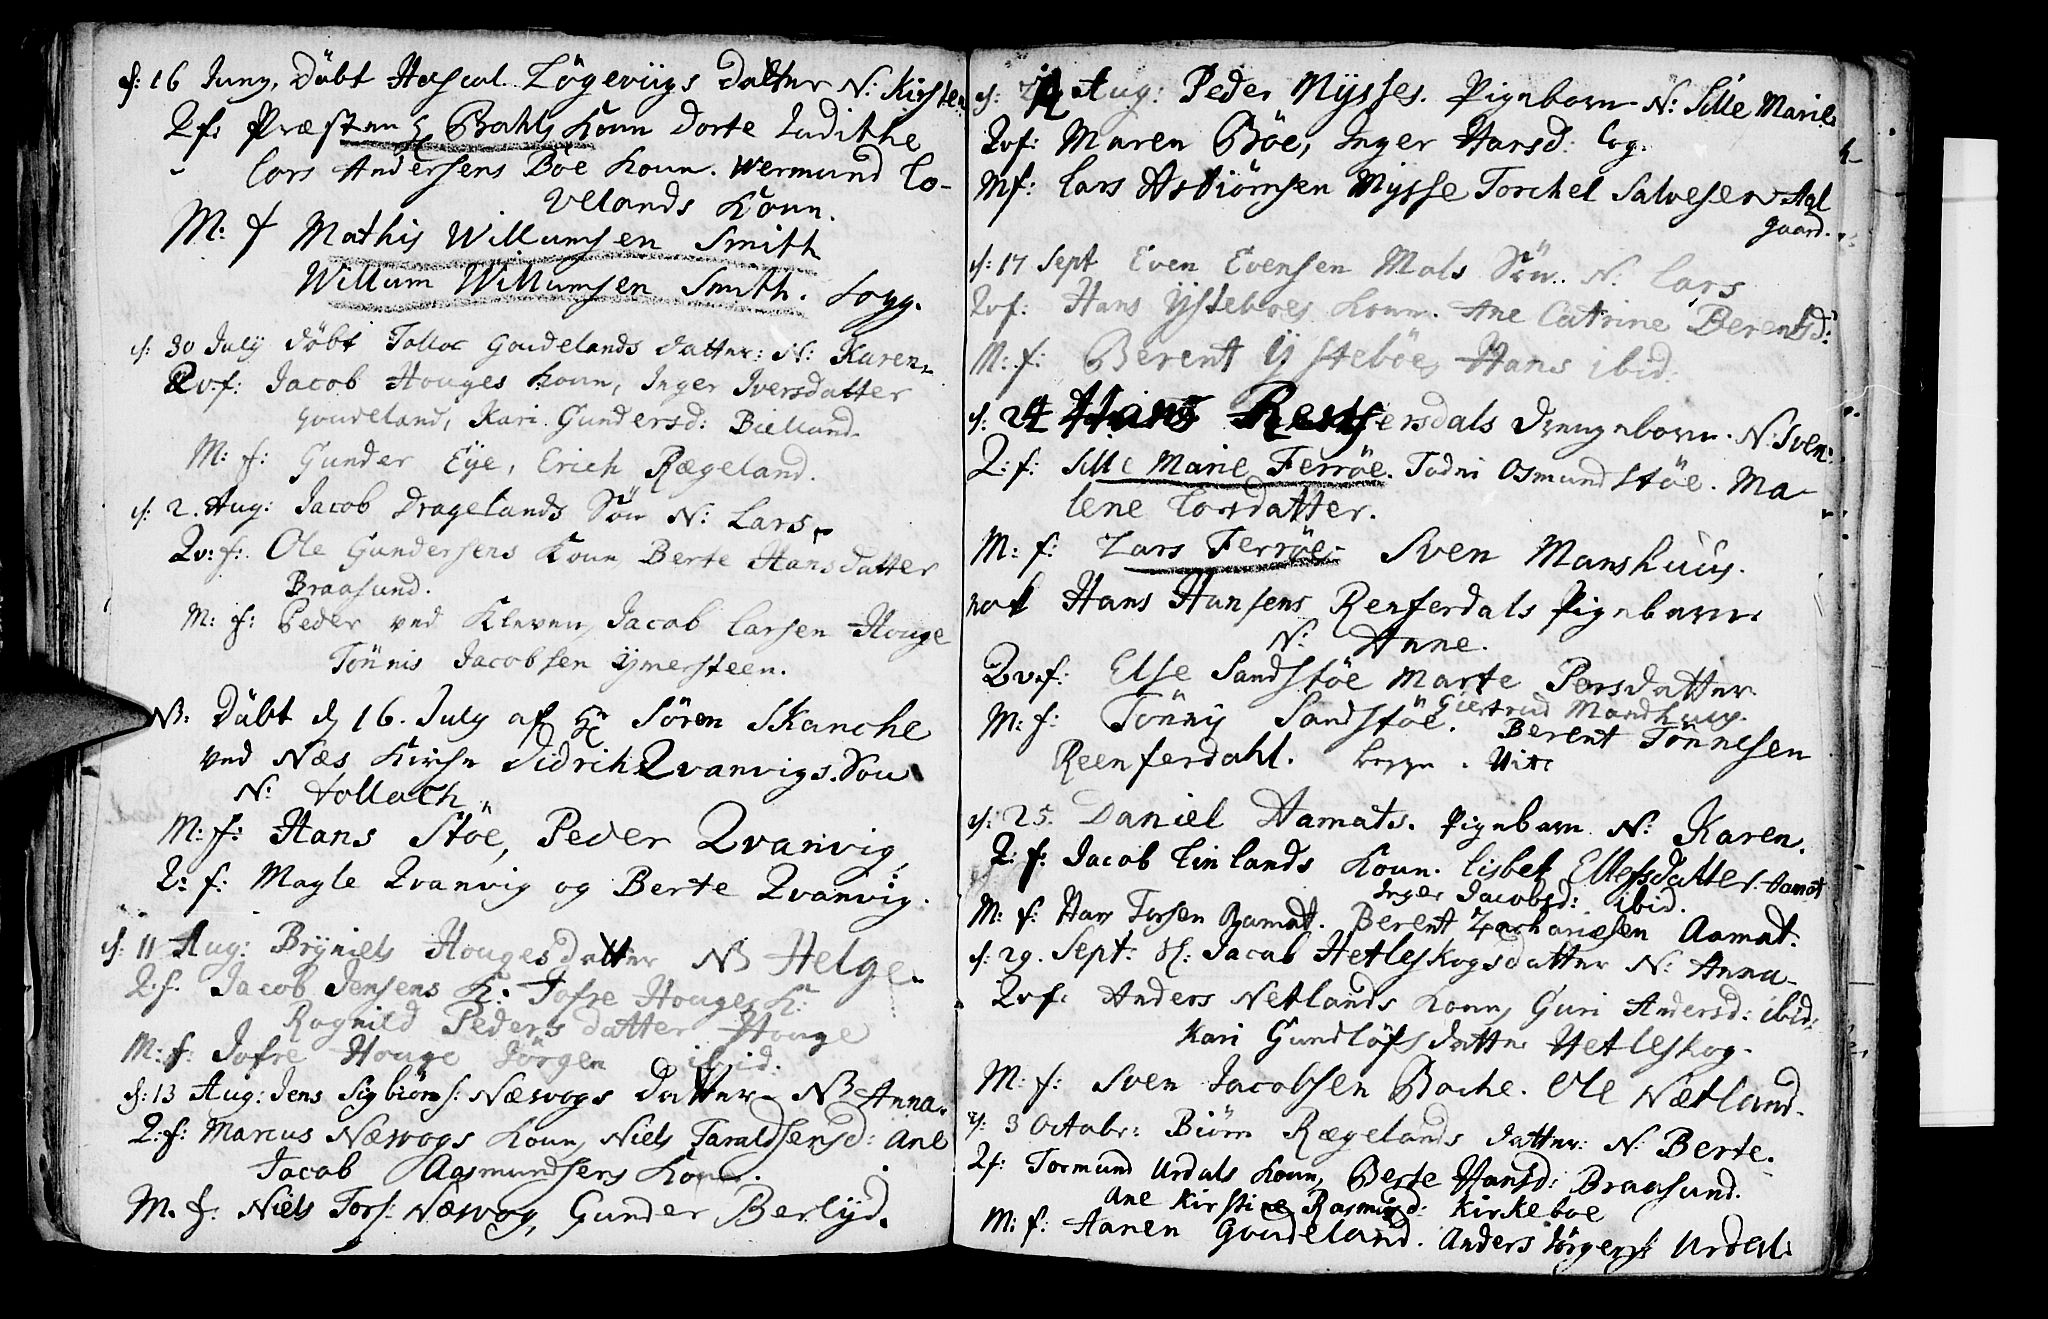 d: 16 Juny, Döbt Hascal Lögeviigs datter N: Kirsten
Q f: Præsten H Bahls Koun Dorte Judithe
Lars Andersens Böe Koun. Wermund Lo-
velands Koun.
M: f Mathis Willumsen Smith
Willum Willumsen Smith. Logg.
d: 30 July döbt Talloc Goudelands datter: N: Karen
Qv: f: Jacob Houges Koun, Inger Iversdatter
Goudeland, Kari Gundersd: Bielland
M: f: Gunder Eye, Erich Rægeland.
d: 2. Aug: Jacob Dragelands Sön N: Lars
Qv: f: Ole Gundersens Koun Berte Hansdatter
Braasund.
M: f: Peder ved Kleven, Jacob Larsen Houge
Tönnis Jacobsen Ymersteen.
NB: Döbt d 16. July af Hr Sören Skanche
ved Næs Kirke Didrich Qvanvigs Sön
N: Tollach
M: f: Hans Stöe, Peder Qvanvig,
Q: f: Magle Qvanvig og Berte Qvanvig.
d: 11 Aug: Bryniels Houges datter N Helge.
Q: f: Jacob Jensens K: Jofre Houges K:
Ragnild Peders datter Houge
M: f: Jofre Houge Jörgen ibid.
d: 13 Aug: Jens Sigbiörns: Næsvogs datter N Anna.
Q: f: Marcus Næsvogs Koun, Niels Taraldsensd: Ane
Jacob Aasmundsens Koun.
M. f: Niels Tors: Næsvog, Gunder Berlyd.
d: Aug: Peder Nysses. Pigebarn N: Sille Marie
Qvf: Maren Böe, Inger Hansd: Log.
Mf: Lars Asbiörnsen Nysse Torchel Salvesen Agl
gaard.
d: 17 Sept Even Evensen Mals Sön. N: Lars
Qvf: Hans Ysteboes Koun. Ane Catrine Berentsd:
M: f: Berent Ysteböe, Hans ibid.
d: 24 Hans Renfersdals Drengebarn. N: Sven:
Q: f: Sille Marie Ferröe. Todni Osmundstöe. Ma-
lene Torsdatter.
M: f: Lars Ferröe. Sven Manshuus.
nok Hans Hansens Renferdals Pigebarn
N: Anne.
Qvf: Else Sandstöe Marte Persdatter
Giertrud Mandhuus.
M: f: Tönnis Sandstöe. Berent Tönnesen
Reenferdahl.
d: 25. Daniel Aamats. Pigebarn N: Karen.
Q: f: Jacob Linlands Koun. Lisbet Ellefsdatter. Aamot
Inger Jacobsd: ibid.
M: f: Hans Torsen Aamot. Berent Zachariesen Aamat.
d: 29. Sept: Jacob Hetleskogs datter N: Anna
Qvf: Anders Netlands Koun, Guri Andersd: ibid:
Kari Gundlöfs datter Hetleskog.
M: f: Sven Jacobsen Boche. Ole Nætland.
d: 3 Octobr: Biörn Rægelands datter: N: Berte.
Qf: Tormund Urdals Koun, Berte Hansd: Braasund.
Ane Kirstine Rasmusd: Kirkeboe
M: f: Aanen Goudeland. Anders Jörgens: Urdal: